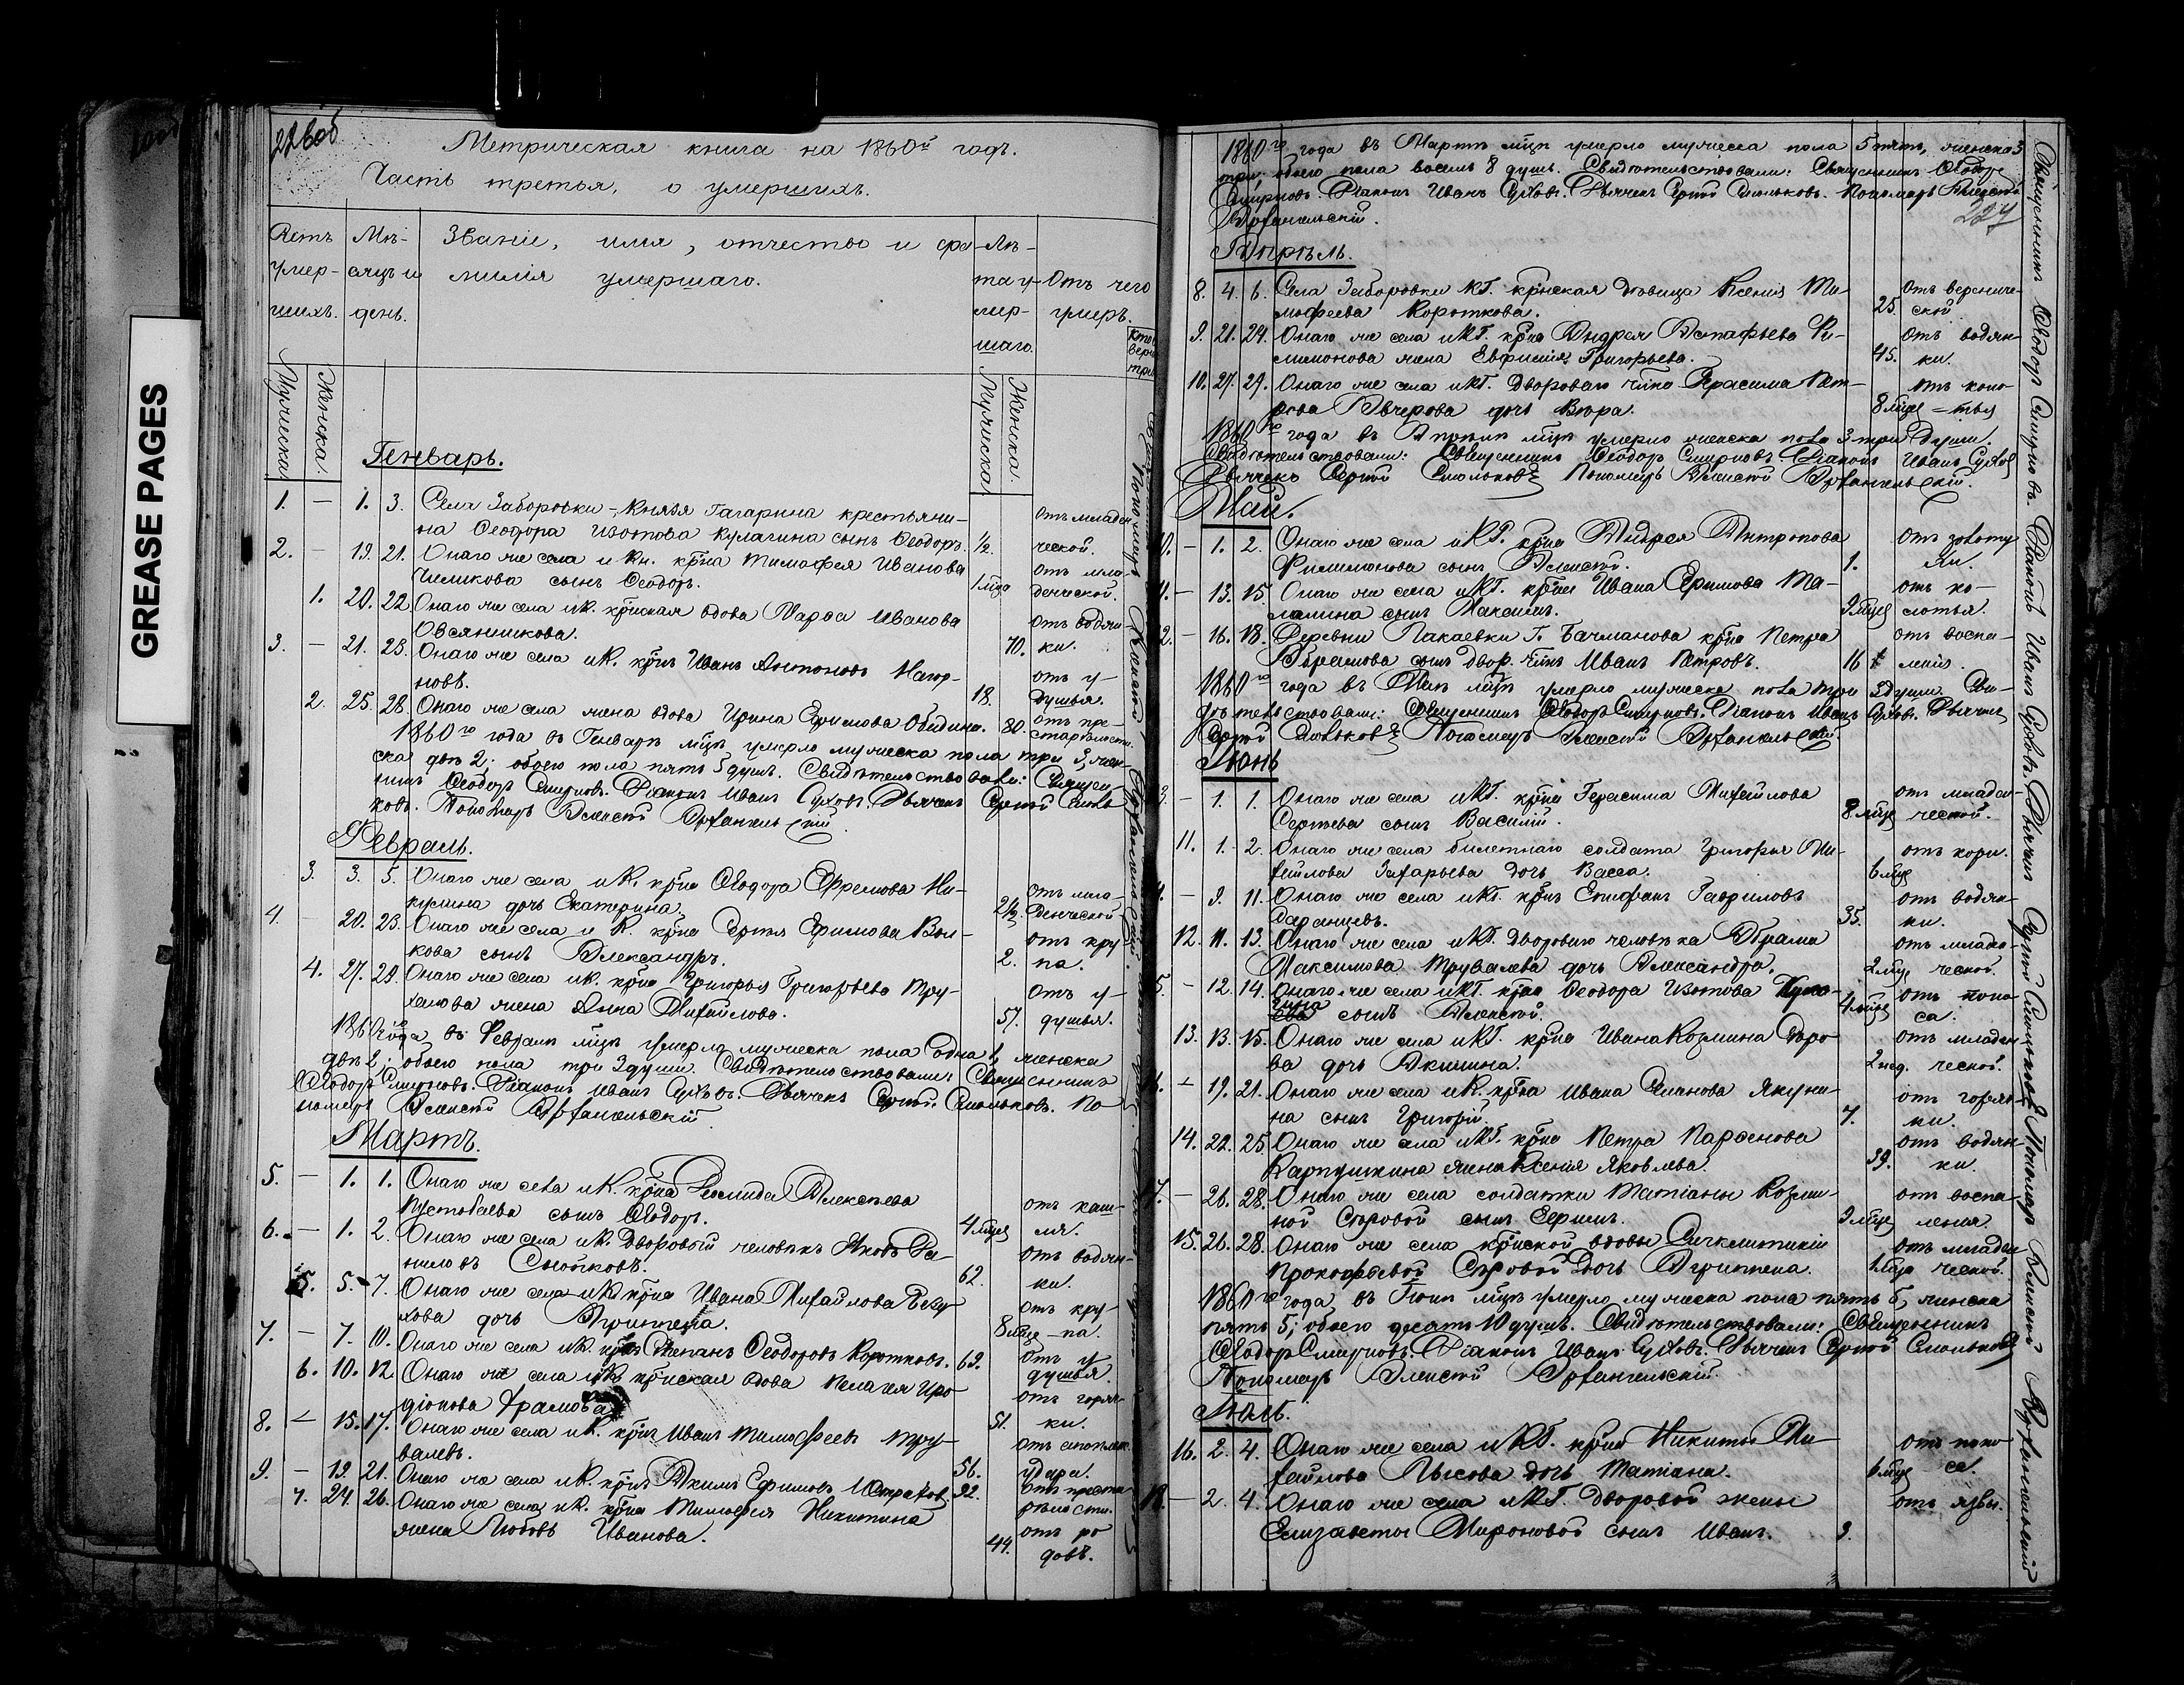 226об
Метрическая книга на 1860й годъ.
Часть третья, о умершихъ.
Счетъ умер-шихъ.
Мѣ-сяцъ и день.
Званіе, имя, отчество и фа-
милія умершаго.
Лѣ-та у-мер-шаго.
Отъ чего умеръ.
Мужеска
Женска.
Мужеска
Женска.
Генварь.
1. — 1. 3. Села Заборовки - Князя Гагарина крестьяни-
на Ѳеодора Изотова Кулагина сынъ Ѳеодоръ. 1/2. отъ младен-ческой.
2. — 19. 21. Онаго же села и Кн. кр͠на Тимофея Иванова
Чиликова сынъ Ѳеодоръ. 1 мѣца отъ мла-денческой.
1. 20. 22. Онаго же села и К. кр͠нская вдова Марѳа Иванова
Овсянникова. 70. отъ водян-ки.
3. — 21. 23. Онаго же села и К. кр͠нъ Иванъ Антоновъ Нагор-
новъ. 18. отъ у-душья.
2. 25. 28. Онаго же села жена вдова Ирина Ефимова Обидина. 80. отъ пре-старѣлости.
1860го года въ Генварѣ мцѣ умерло мужеска пола три 3, жен-
ска двѣ 2; обоего пола пять 5 душъ. Свидѣтельствовали: Священ-
никъ Ѳеодоръ Смирновъ. Діаконъ Иванъ Суховъ. Дьячекъ Сергѣй Смоль-
ковъ. Пономарь Алексѣй Архангельскій.
Февраль.
3. 3. 5. Онаго же села и К. кр͠на Ѳеодора Ефремова Ни-
кулина дочь Екатерина. 2 1/2. отъ мла-денческой
4. — 20. 23. Онаго же села и К. кр͠на Сергѣя Ефимова Вол-
кова сынъ Александръ. 2. отъ кру-па.
4. 27. 29. Онаго же села и К. кр͠на Григорья Григорьева Тру-
жена Анна Михайлова. 57. отъ у-душья.
1860го года въ Февралѣ мцѣ умерло мужеска пола одна 1, женска
двѣ 2; обоего пола три 3 души. Свидѣтельствовали: Священникъ
Ѳеодоръ Смирновъ. Діаконъ Иванъ Суховъ. Дьячекъ Сергѣй Смольковъ. По-
номарь Алексѣй Архангельскій.
Мартъ.
5. — 1. 1. Онаго же села и К. кр͠на Леонида Алексѣева
Пустобаева сынъ Ѳеодоръ. 4 мѣцев отъ каш-ля.
6. — 1. 2. Онаго же села и К. дворовый человѣкъ Яковъ Да-
ниловъ 62. отъ водян-ки.
5. 5. 7. Онаго же села и К. кр͠на Ивана Михайлова
дочь Агриппена. 8 мѣце отъ кру-па.
7. — 7. 10. Онаго же села и К. кр͠нъ Степанъ Ѳеодоровъ Коротковъ. 69. отъ у-душья.
6. 10. 12. Онаго же села и К. кр͠нская вдова Пелагея Иро-
діонова Храмова 51. отъ горяч-ки.
8. — 15. 17. Онаго же села и К. кр͠нъ Иванъ Тимофеевъ Тру-
валевъ. 56. удара.
9. — 19. 21. Онаго же села и К. кр͠нъ Акимъ Ефимовъ 92. отъ преста-рѣлости.
7. 24. 26. Онаго же села и К. кр͠на Тимофея Никитина
жена Любовь Иванова. 44. отъ ро-довъ.
1860го года въ Мартѣ мцѣ умерло мужеска пола 5 пять, женска 3
три; обоего пола восемь 8 душъ. Свидѣтельствовали: Священникъ Ѳеодоръ
Смирновъ. Діаконъ Иванъ Суховъ. Дьячекъ Сергѣй Смольковъ. Пономарь Алексѣй
Архангельскій.
227
Апрѣль.
8. 4. 6. Села Заборовки К. Г. кр͠нская дѣвица Ксенія Ти-
мофеева Короткова. 25.
9. 21. 24. Онаго же села и К. Г. кр͠на Андрея Астафьева Фи-
лимонова жена Евфимія Григорьева. 45. отъ водян-ки.
10. 27. 29. Онаго же села и К. Г. дворового чл͠ка Герасима Пет-
рова дочь Вѣра. 8 мѣце отъ коло-тья
1860го года въ Апрѣлѣ мцѣ умерло женска пола 3 три души.
Свидѣтельствовали: Священникъ Ѳеодоръ Смирновъ. Діаконъ Иванъ Суховъ
Дьячекъ Сергѣй Смольковъ. Пономарь Алексѣй Архангельскій.
Май.
10. — 1. 2. Онаго же села и К. Г. кр͠на Андрея Антропова
Филимонова сынъ Алексѣй. 1. отъ золоту-хи.
11. — 13. 15. Онаго же села и К. Г. кр͠на Ивана Ефимова Ма-
лалина сынъ Максимъ. 9 мѣце отъ ко-лотья.
12. — 16. 18. Деревни Пакаевки Г. Бахманова кр͠на Петра
Абрамова сынъ двор. чл͠къ Иванъ Петровъ. 16 отъ воспа-ленія.
1860го года въ Маѣ мцѣ умерло мужеска пола три 3 души. Сви-
дѣтельствовали: Священникъ Ѳеодоръ Смирновъ. Діаконъ Иванъ Суховъ. Дьячекъ
Сергѣй Смольковъ. Пономарь Алексѣй Архангельскій.
Іюнь
13. — 1. 1. Онаго же села и К. Г. кр͠на Герасима Михайлова
Сергѣева сынъ Василій. 8 мѣце отъ младен-ческой.
11. 1. 2. Онаго же села билетнаго солдата Григорья Ми-
хайлова Захарьева дочь Васса. 6 мѣце отъ кори.
14. — 9. 11. Онаго же села и К. Г. кр͠нъ Епифанъ Гавриловъ
Даранцевъ. 35. отъ водян-ки.
12. 11. 13. Онаго же села и К. Г. дворового человѣка Абрама
Максимова Трувалева дочь Александра. 2 мѣце отъ младе-ческой.
15. — 12. 14. Онаго же села и К. Г. кр͠на Ѳеодора Изотова Кула-
гина сынъ Алексѣй. 4 мѣце отъ поно-са.
13. 13. 15. Онаго же села и К. Г. кр͠на Ивана Козмина
дочь Акилина. 2 нед. отъ младен-ческой.
16. — 19. 21. Онаго же села и К. кр͠на Ивана Семанова Якуни-
на сынъ Григорій. 7. отъ горяч-ки.
14. 22. 25. Онаго же села и К. Г. кр͠на Петра Парѳенова
Карпушкина жена Ксенія Яковлева. 39. отъ водян-ки.
17. — 26. 28. Онаго же села солдатки Татіаны Козми-
ной Сѣровой сынъ Ефимъ. 9 мѣце отъ воспа-ленія.
15. 26. 28. Онаго же села кр͠нской вдовы Синклитикіи
Прокофьевой Сѣровой дочь Агриппена. 1 мѣца отъ младен-ческой.
1860го года въ Іюнѣ мцѣ умерло мужеска пола пять 5, женска
пять 5; обоего десять 10 душъ. Свидѣтельствовали: Священникъ
Ѳеодоръ Смирновъ. Діаконъ Иванъ Суховъ. Дьячекъ Сергѣй Смольковъ
Пономарь Алексѣй Архангельскій.
Іюль.
16. 2. 4. Онаго же села и К. Г. кр͠на Никиты Ми-
хайлова Лысова дочь Татіана. 6 мѣце отъ поно-са.
18. — 2. 4. Онаго же села и К. Г. дворовой жены
Елизаветы Мироновой сынъ Иванъ. 9. отъ язвы.
Священникъ Ѳеодоръ Смирновъ. Діаконъ Иванъ Суховъ. Дьячекъ Сергѣй Смольковъ Пономарь Алексѣй Архангельскій
GREASE PAGES